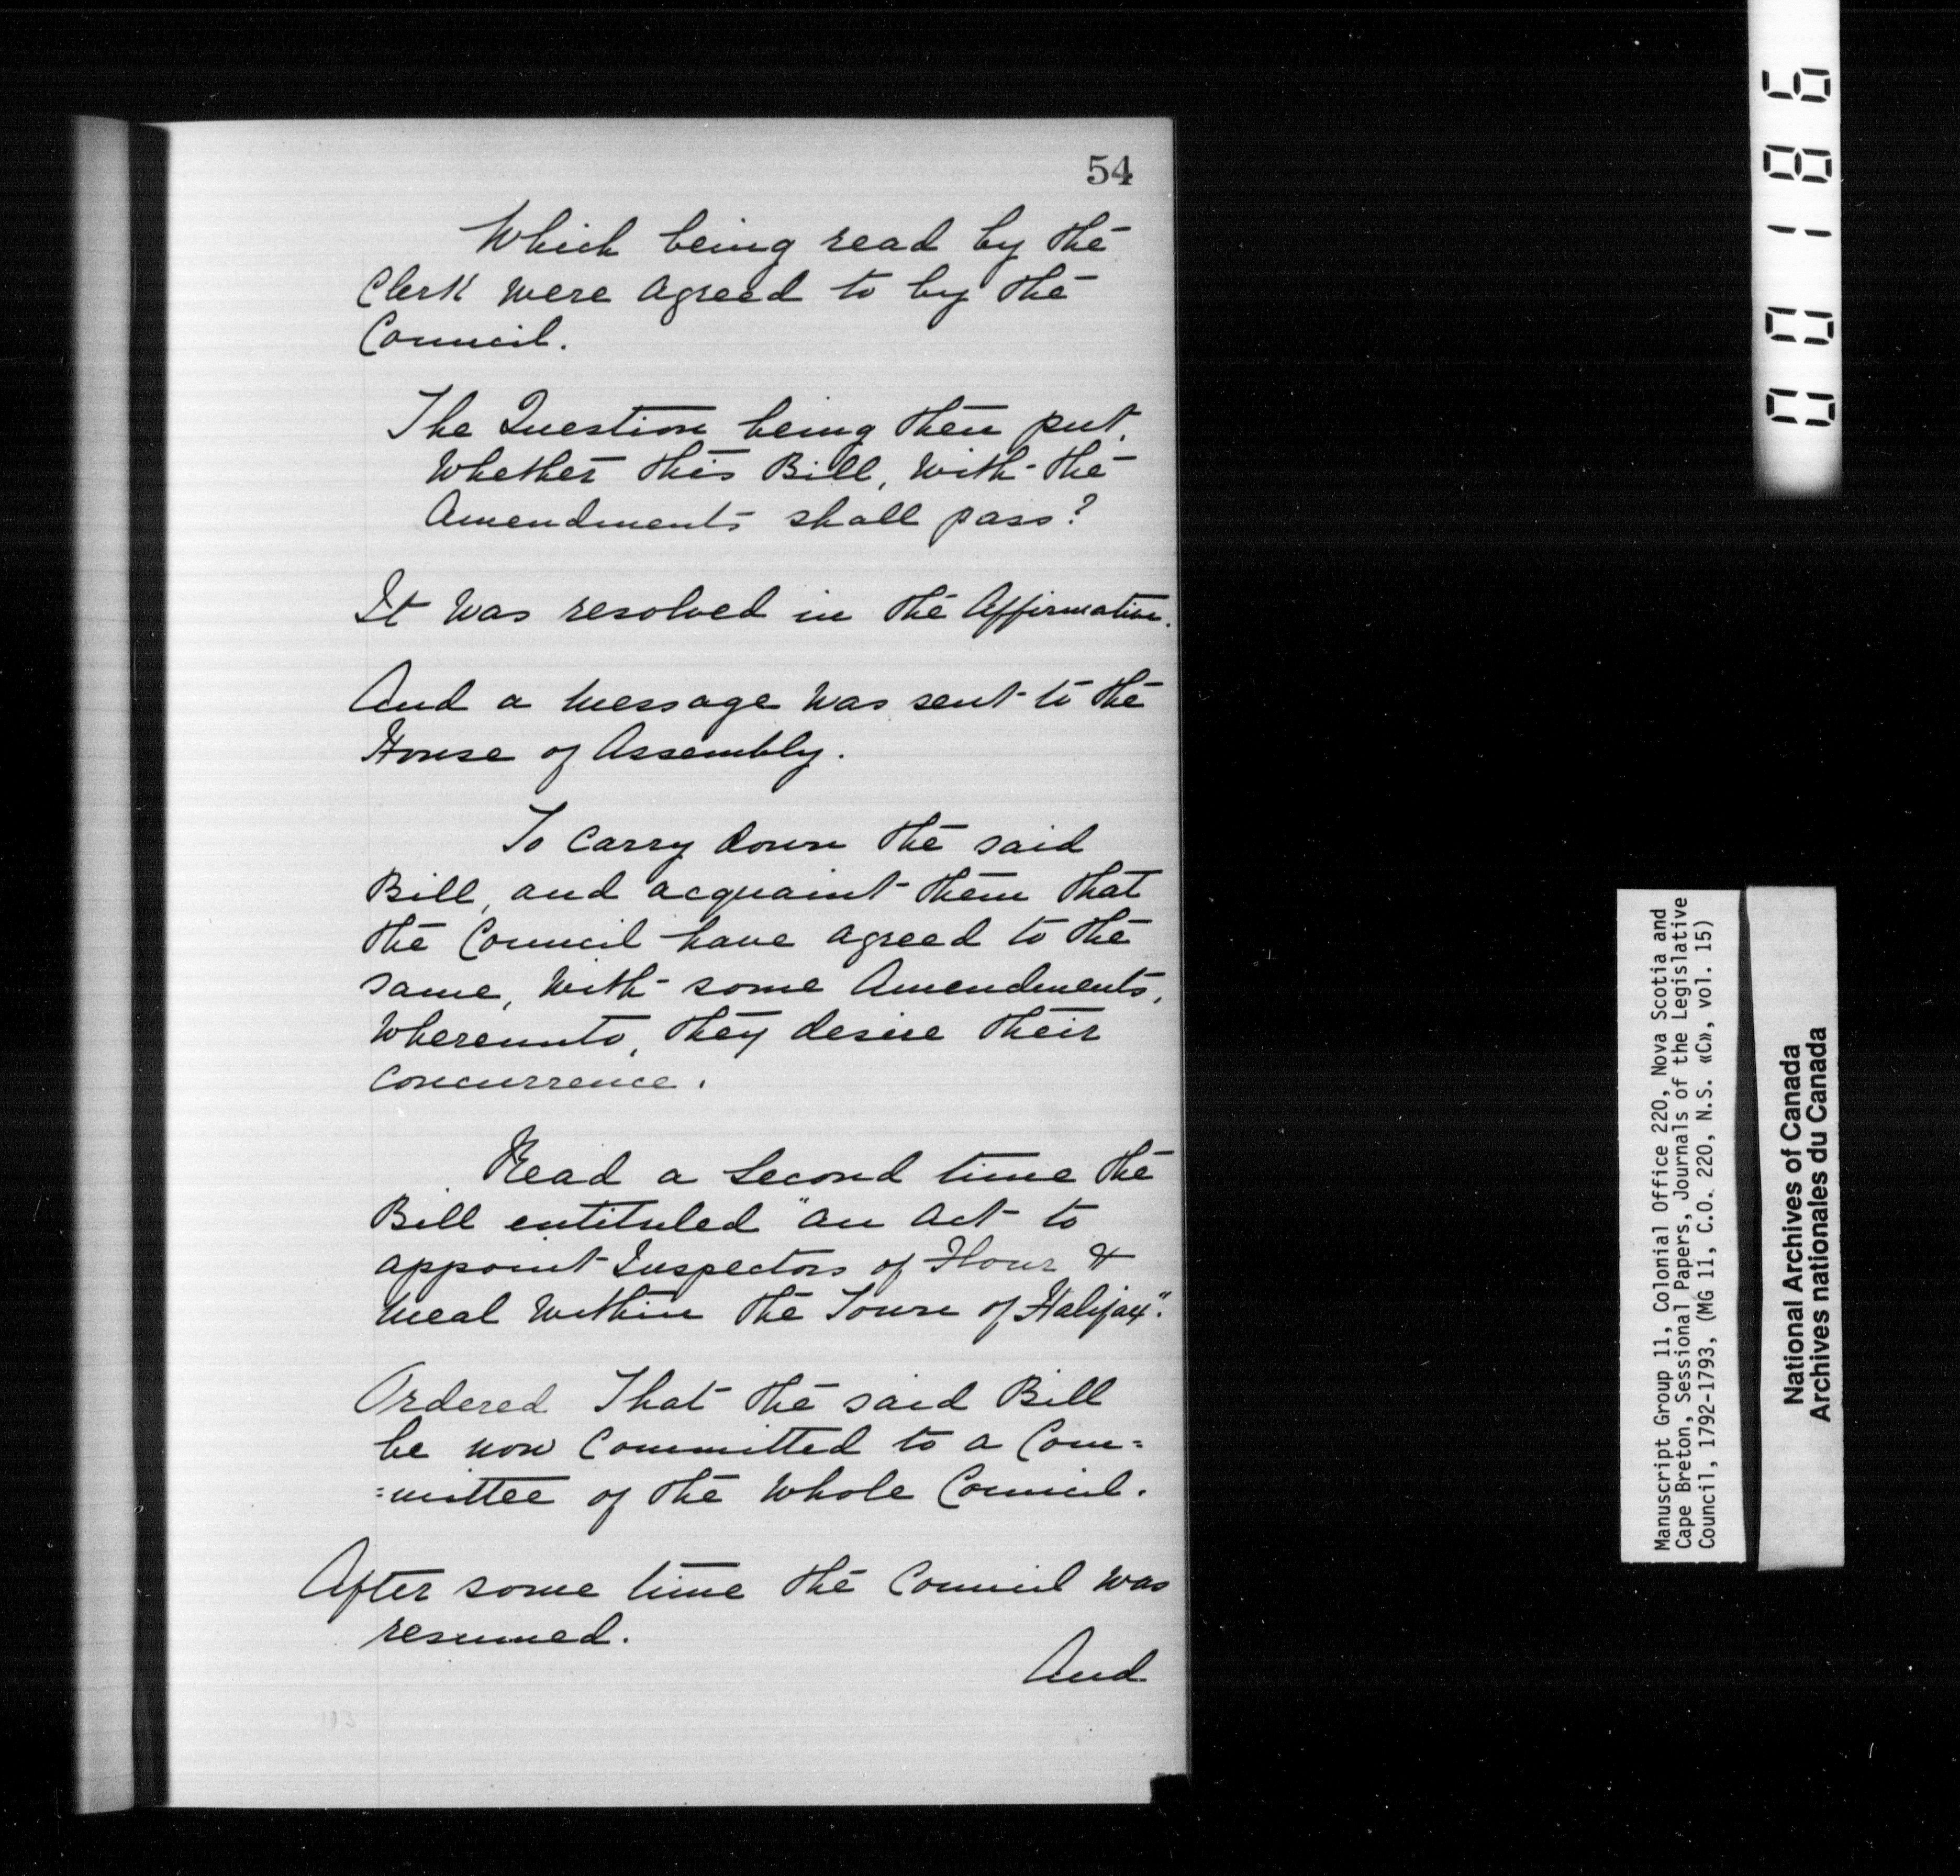 54
Which being read by the
Clerk were agreed to by the
Council.
The Question being then put,
Whether this Bill, with the
Amendments shall pass?
It was resolved in the Affirmative.
And a message was sent to the
House of Assembly.
To carry down the said
Bill, and acquaint them that
the Council have agreed to the
same, with some Amendments,
Whereunto, they desire their
concurrence.
Read a second time the
Bill entituled "an Act to
appoint Inspectors of Flour &
Meal within the Town of Halifax".
Ordered That the said Bill
be now Committed to a Com=
=mittee of the Whole Council.
After some time the Council was
resumed.
And
193
001186
Manuscript Group 11, Colonial Office 220, Nova Scotia and
Cape Breton, Sessional Papers, Journals of the Legislative
Council, 1792-1793, (MG 11, C.O. 220, N.S. «C», vol. 15)
National Archives of Canada
Archives nationales du Canada